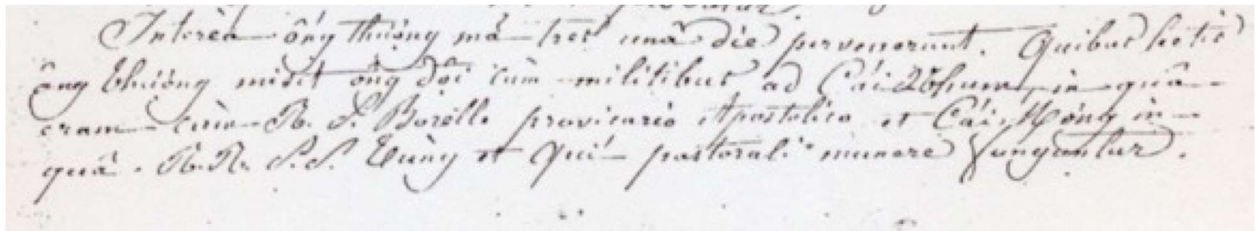 Intereà ông thuòng mả tres unâ die pervenerunt. Quibus lectis
ông thuòng misit ông đội cùm militibus ad Cái Nhum, in quâ
eram cùm R. P. Borelle provicario Apostolico et Cái Mong in
quâ R.R. P.P. Tùng et Qui pastorali munere funguntur.